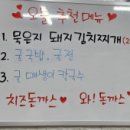 오늘 추천메뉴
1. 묵은지 돼지 김치찌개(2
2. 굴국밥, 굴전
3. 굴 매생이 칼국수
치즈돈까스 와! 돈까스